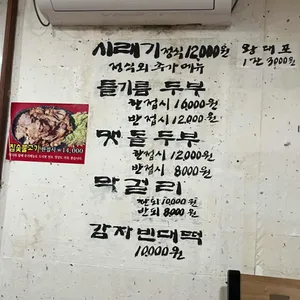 시래기정식 12,000원
왕대포
1잔 3000원
정식외 추가메뉴
들기름 두부
한접시 16,000원
반접시 12,000원
맷돌두부
한접시 12,000원
반접시 8000원
막걸리
한되 10,000원
반되 8,000원
감자빈대떡
10,000원
숯불소가 한접시 ₩14,000